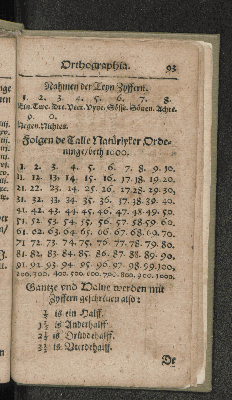 Orthographia. 93
Nahmen der Teyn Zyffern.
1. 2. 3. 4. 5. 6. 7. 8.
Ein. Twe. Dre. Veer. Vyve. Söss. Söven. Achte.
9. 0.
Negen. Nichtes.
Folgen de Talle Natürlyker Orde-
ninge/ beth 1000.
1. 2. 3. 4. 5. 6. 7. 8. 9. 10.
11. 12. 13. 14. 15. 16. 17. 18. 19. 20.
21. 22. 23. 24. 25. 26. 27. 28. 29. 30,
31. 32. 33. 34. 35. 36. 37. 38. 39. 40.
41. 42. 43. 44. 45. 46. 47. 48. 49. 50.
51. 52. 53. 54. 55. 56. 57. 58. 59. 60.
61. 62. 63. 64. 65. 66. 67. 68. 69. 70.
71. 72. 73. 74. 75. 76. 77. 78. 79. 80.
81. 82. 83. 84. 85. 86. 87. 88. 89. 90.
91. 92. 93. 94. 95. 96. 97. 98. 99. 100,
200. 300. 400. 500. 600. 700. 800. 900. 1000.
Gantze vnd Halve werden mit
Zyffern geschreven also:
½ is ein Halff.
1½ is Anderhalff.
2½ is Drüddehalff.
3½ is Veerdehalff.
De